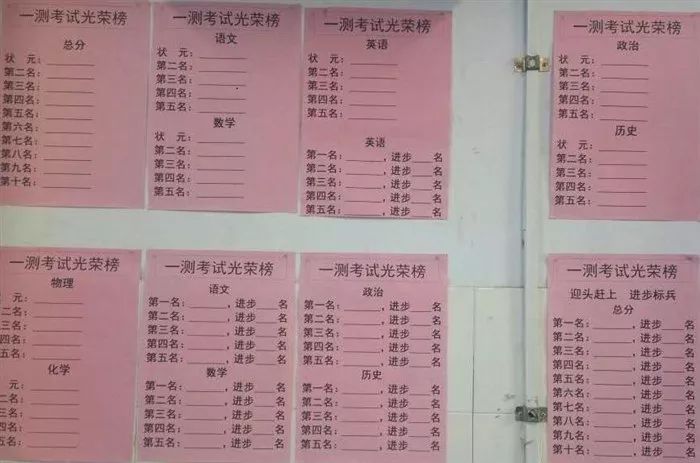 一测考试光荣榜
总分
状 元：______
第二名：______
第三名：______
第四名：______
第五名：______
第六名：______
第七名：______
第八名：______
第九名：______
第十名：______
一测考试光荣榜
语文
状 元：______
第二名：______
第三名：______
第四名：______
第五名：______
数学
状 元：______
第二名：______
第三名：______
第四名：______
第五名：______
一测考试光荣榜
英语
状 元：______
第二名：______
第三名：______
第四名：______
第五名：______
英语
第一名：_____，进步___名
第二名：_____，进步___名
第三名：_____，进步___名
第四名：_____，进步___名
第五名：_____，进步___名
一测考试光荣榜
政治
状 元：______
第二名：______
第三名：______
第四名：______
第五名：______
历史
状 元：______
第二名：______
第三名：______
第四名：______
第五名：______
一测考试光荣榜
物理
元：______
第二名：______
第三名：______
第四名：______
第五名：______
化学
元：______
第二名：______
第三名：______
第四名：______
第五名：______
一测考试光荣榜
语文
第一名：_____，进步___名
第二名：_____，进步___名
第三名：_____，进步___名
第四名：_____，进步___名
第五名：_____，进步___名
数学
第一名：_____，进步___名
第二名：_____，进步___名
第三名：_____，进步___名
第四名：_____，进步___名
第五名：_____，进步___名
一测考试光荣榜
政治
第一名：_____，进步___名
第二名：_____，进步___名
第三名：_____，进步___名
第四名：_____，进步___名
第五名：_____，进步___名
历史
第一名：_____，进步___名
第二名：_____，进步___名
第三名：_____，进步___名
第四名：_____，进步___名
第五名：_____，进步___名
一测考试光荣榜
迎头赶上 进步标兵
总分
第一名：_____，进步___名
第二名：_____，进步___名
第三名：_____，进步___名
第四名：_____，进步___名
第五名：_____，进步___名
第六名：_____，进步___名
第七名：_____，进步___名
第八名：_____，进步___名
第九名：_____，进步___名
第十名：_____，进步___名